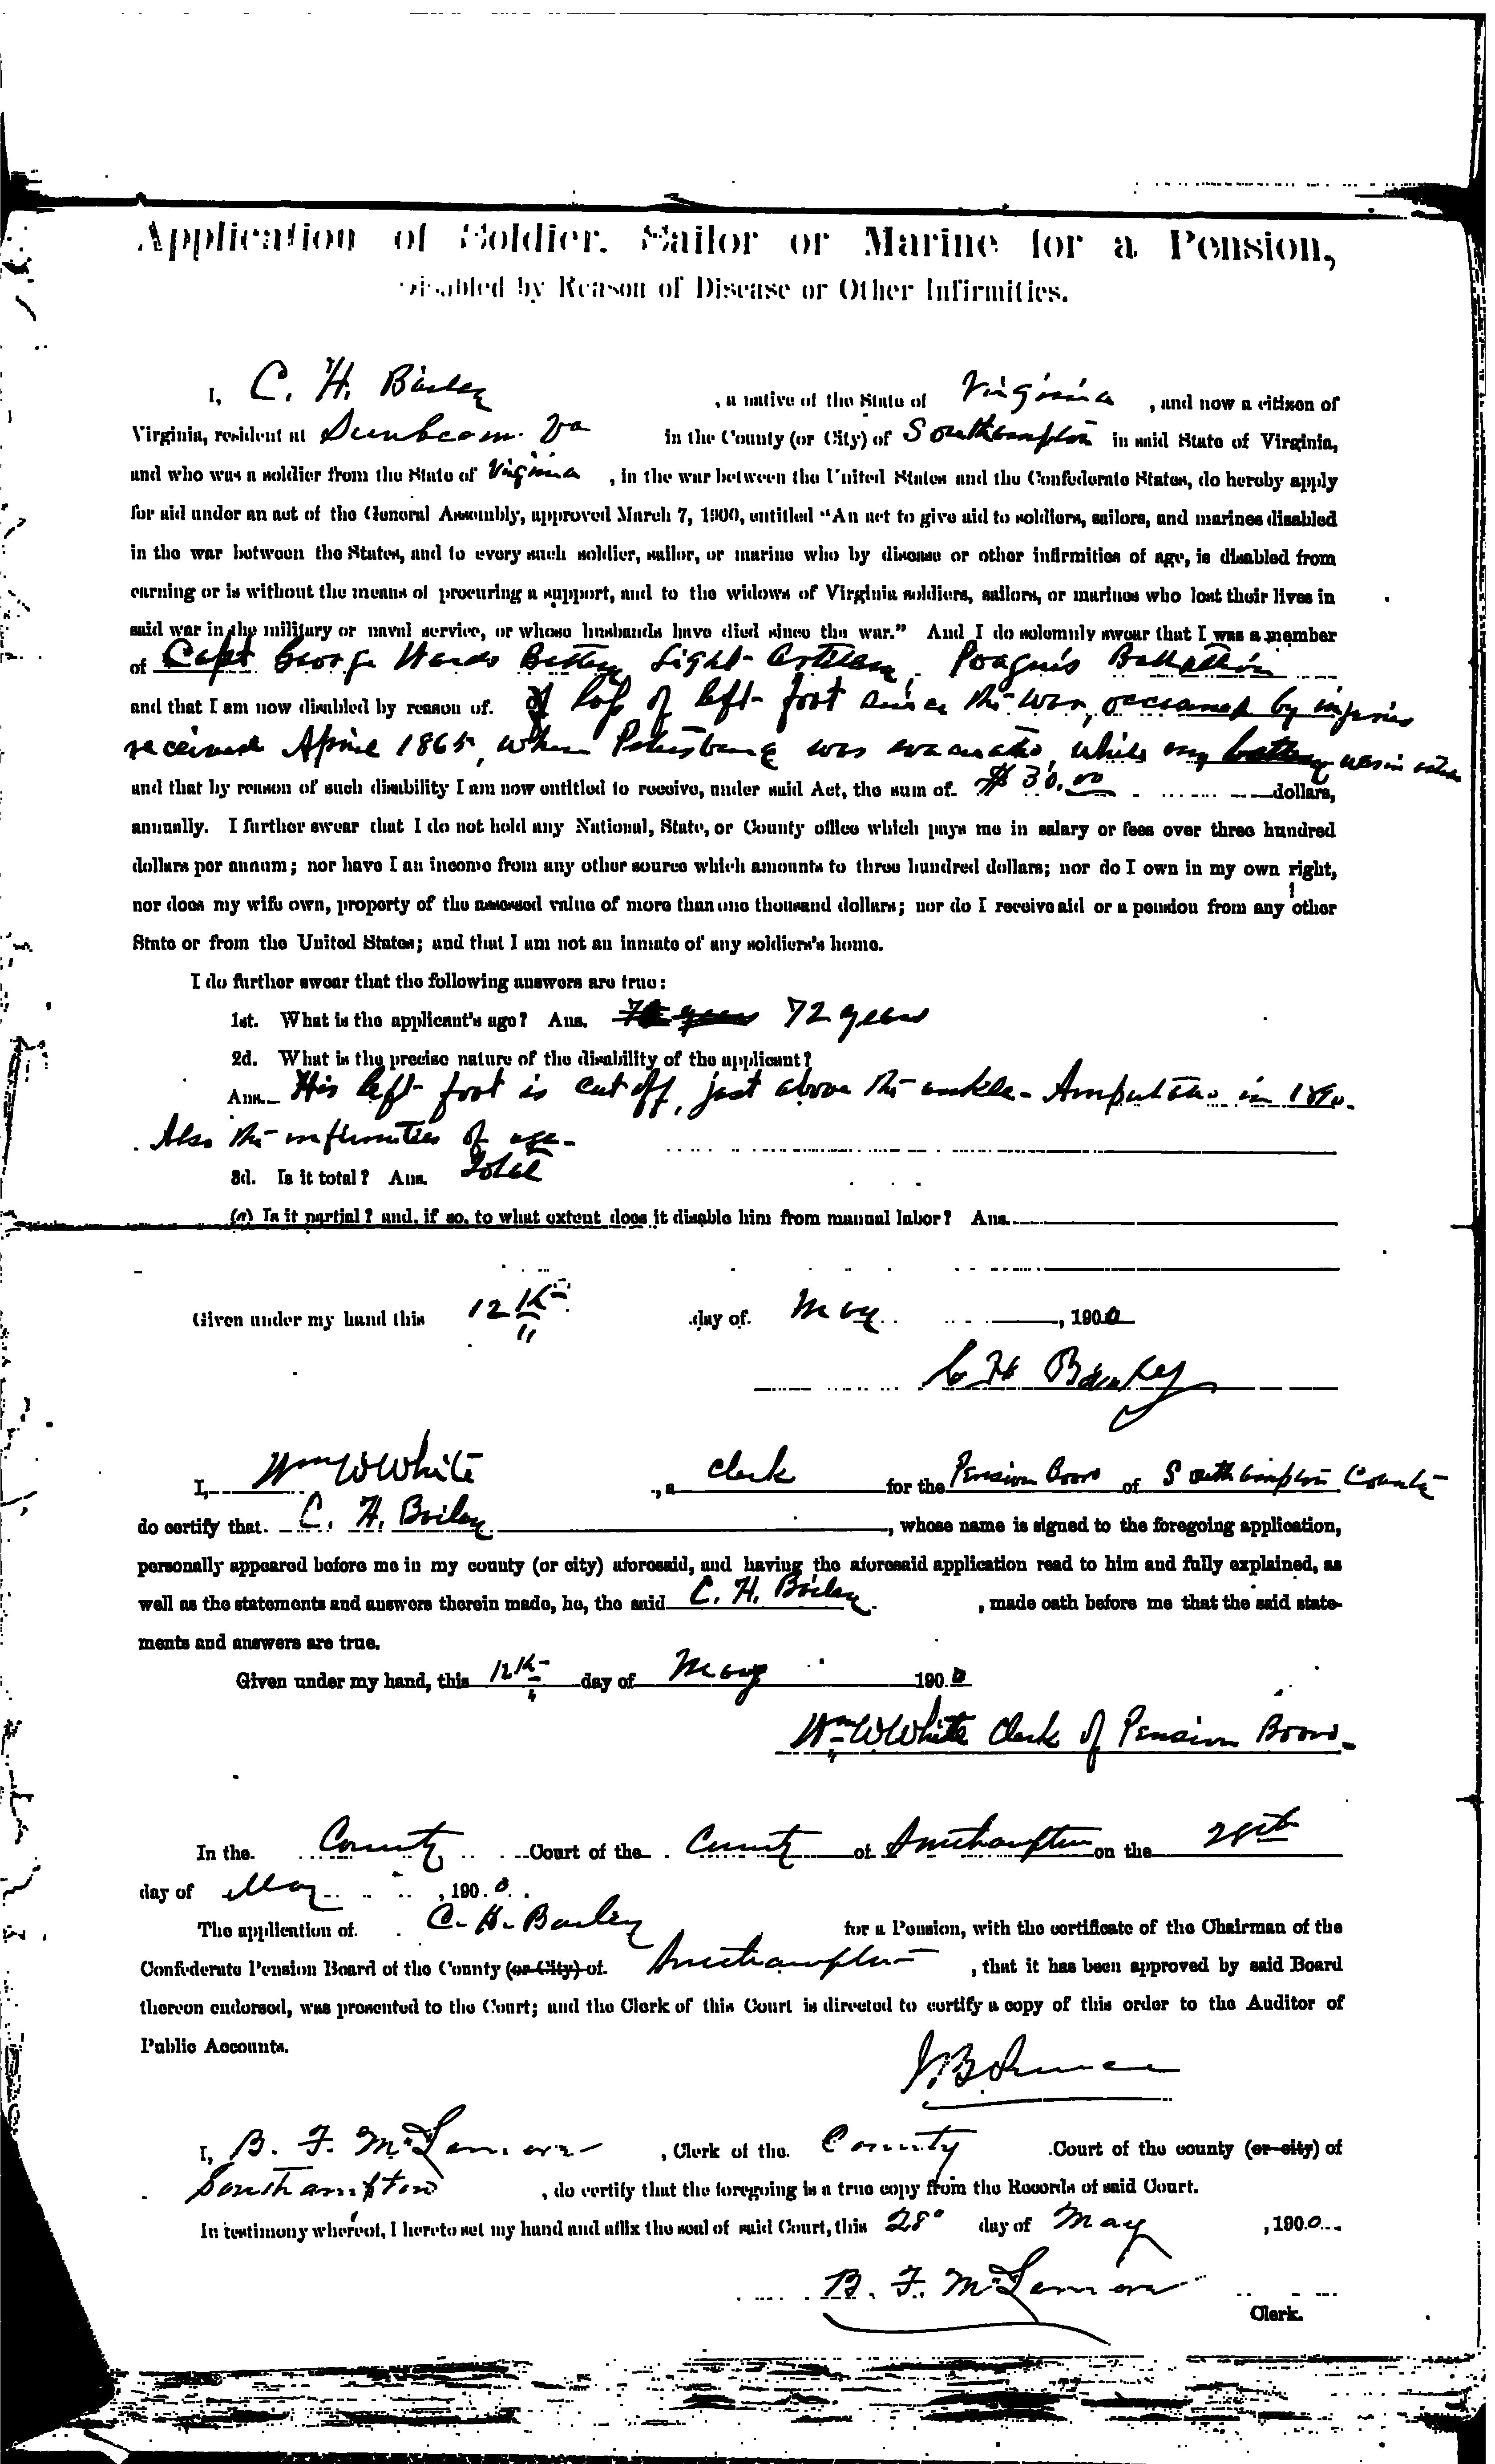 Application of Soldier, Sailor or Marine for a Pension,
Disabled by Reason of Disease or Other Infirmities.
I, C. H. Bailey , a native of the State of Virginia , and now a citizen of
Virginia, resident at Sunbeam Va in the County (or City) of Southampton in said State of Virginia,
and who was a soldier from the State of Virginia , in the war between the United States and the Confederate States, do hereby apply
for aid under an act of the General Assembly, approved March 7, 1900, entitled "An act to give aid to soldiers, sailors, and marines disabled
in the war between the States, and to every such soldier, sailor, or marine who by disease or other infirmities of age, is disabled from
earning or is without the means of procuring a support, and to the widows of Virginia soldiers, sailors, or marines who lost their lives in
said war in the military or naval service, or whose husbands have died since the war." And I do solemnly swear that I was a member
of Capt George Wards Battery Light Artillery Poague's Battalion
and that I am now disabled by reason of. of loss of left foot since the war, occasioned by injuries
received April 1865, when Petersburg was evacuated, while my battery was in
and that by reason of such disability I am now entitled to receive, under said Act, the sum of. $30.00 dollars,
annually. I further swear that I do not hold any National, State, or County office which pays me in salary or fees over three hundred
dollars per annum; nor have I an income from any other source which amounts to three hundred dollars; nor do I own in my own right,
nor does my wife own, property of the assessed value of more than one thousand dollars; nor do I receive aid or a pension from any other
State or from the United States; and that I am not an inmate of any soldiers's home.
I do further swear that the following answers are true:
1st. What is the applicant's age? Ans. 72 years
2d. What is the precise nature of the disability of the applicant?
Ans. His left foot is cut off, just above the ankle - Amputated in 1890.
Also the infirmities of age -
3d. Is it total? Ans. Total
(a) Is it partial? and, if so, to what extent does it disable him from manual labor? Ans.
Given under my hand this 12th day of. May , 1900
C H Bailey
I, Wm W White , a clerk for the Pension Board of Southampton County
do certify that. C. H. Bailey , whose name is signed to the foregoing application,
personally appeared before me in my county (or city) aforesaid, and having the aforesaid application read to him and fully explained, as
well as the statements and answers therein made, he, the said C. H. Bailey , made oath before me that the said state-
ments and answers are true.
Given under my hand, this 12th day of May 1900
Wm W White Clerk of Pension Board -
In the. County Court of the County of Southampton on the 28th
day of May , 1900.
The application of. C. H. Bailey for a Pension, with the certificate of the Chairman of the
Confederate Pension Board of the County (or City) of. Southampton , that it has been approved by said Board
thereon endorsed, was presented to the Court; and the Clerk of this Court is directed to certify a copy of this order to the Auditor of
Public Accounts.
I, B. F. McLemore , Clerk of the. County Court of the county (or city) of
Southampton , do certify that the foregoing is a true copy from the Records of said Court.
In testimony whereof, I hereto set my hand and affix the seal of said Court, this 28" day of May , 1900
B. F. McLemore
Clerk.